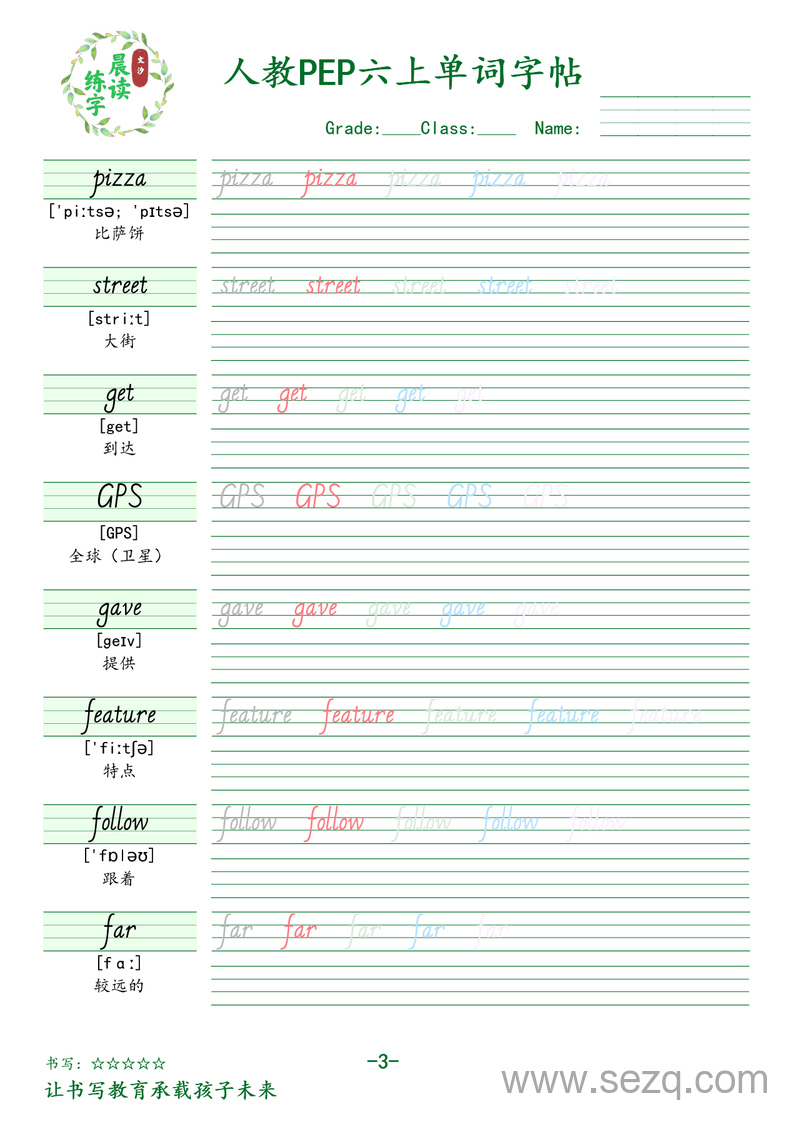 文汐
晨读
练字
人教PEP六上单词字帖
Grade:____Class:____ Name:
pizza pizza pizza pizza pizza pizza
['piːtsə; 'pɪtsə]
比萨饼
street street street street street street
[striːt]
大街
get get get get get get
[get]
到达
GPS GPS GPS GPS GPS GPS
[GPS]
全球（卫星）
gave gave gave gave gave gave
[geɪv]
提供
feature feature feature feature feature feature
['fiːtʃə]
特点
follow follow follow follow follow follow
['fɒləʊ]
跟着
far far far far far far
[fɑː]
较远的
书写：☆☆☆☆☆
-3-
让书写教育承载孩子未来
www.sezq.com